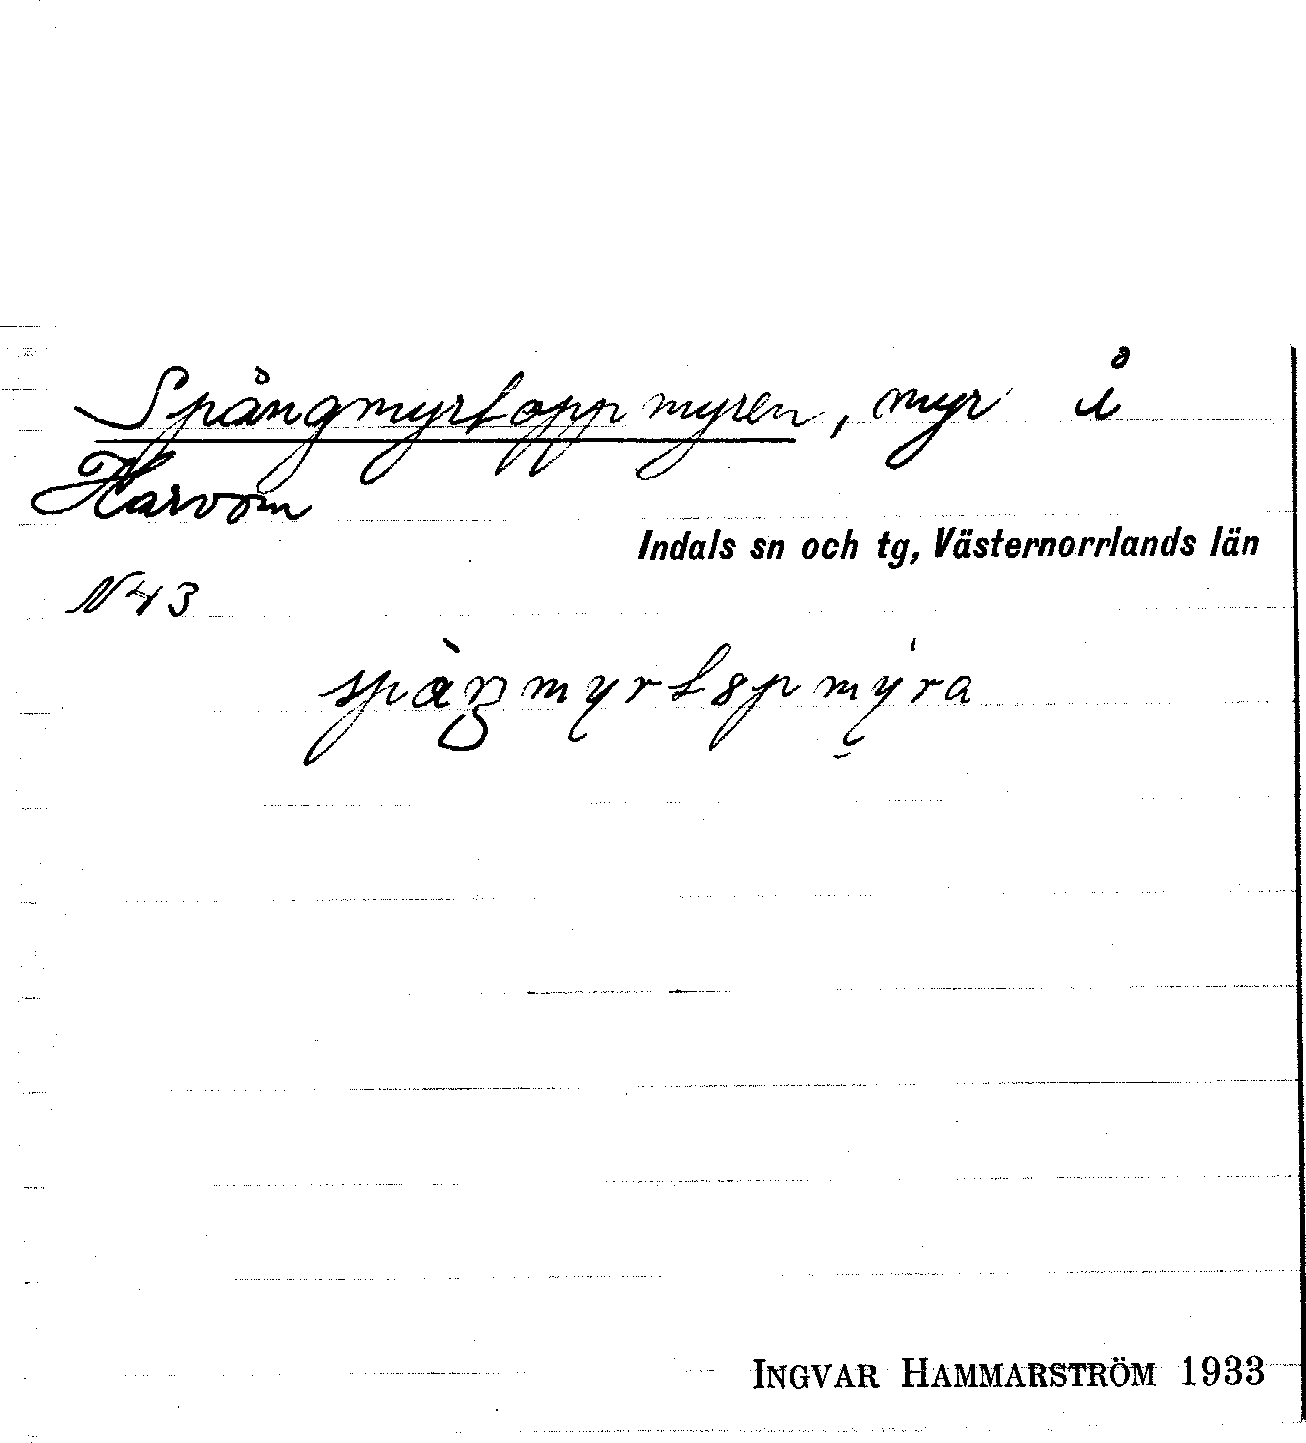 Spångmyrtoppmyren, myr i
Harvom
Indals sn och tg, Västernorrlands län
N43
INGVAR HAMMARSTRÖM 1933